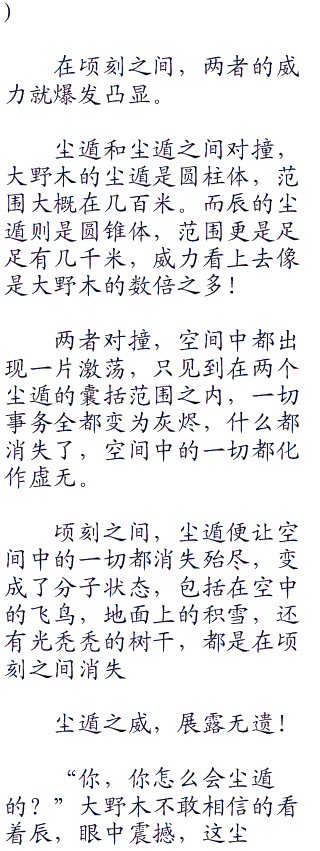 )
在顷刻之间，两者的威
力就爆发凸显。
尘遁和尘遁之间对撞，
大野木的尘遁是圆柱体，范
围大概在几百米。而辰的尘
遁则是圆锥体，范围更是足
足有几千米，威力看上去像
是大野木的数倍之多！
两者对撞，空间中都出
现一片激荡，只见到在两个
尘遁的囊括范围之内，一切
事务全都变为灰烬，什么都
消失了，空间中的一切都化
作虚无。
顷刻之间，尘遁便让空
间中的一切都消失殆尽，变
成了分子状态，包括在空中
的飞鸟，地面上的积雪，还
有光秃秃的树干，都是在顷
刻之间消失
尘遁之威，展露无遗！
“你，你怎么会尘遁
的？”大野木不敢相信的看
着辰，眼中震撼，这尘